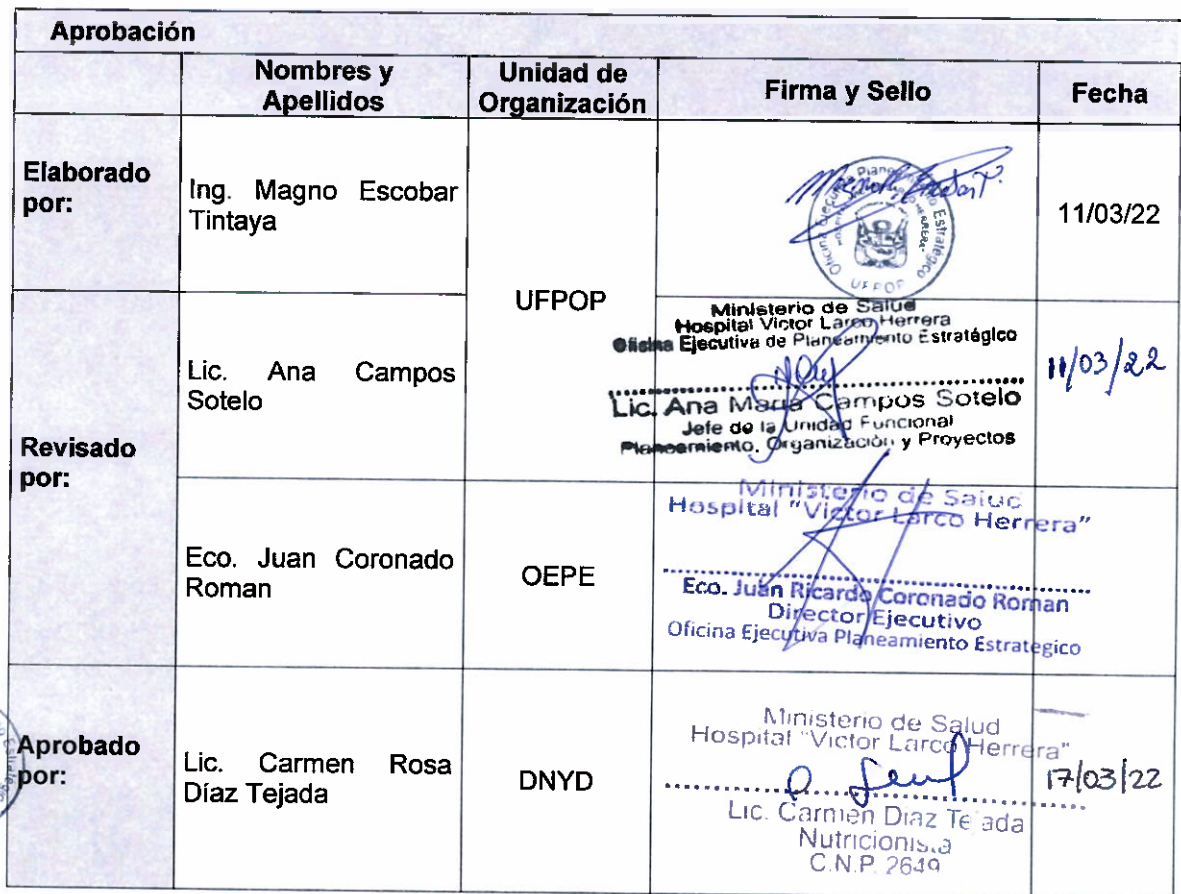 Aprobación
Nombres y
Apellidos
Unidad de
Organización
Firma y Sello
Fecha
Elaborado
por:
Ing. Magno Escobar
Tintaya
UFPOP
Oficina Ejecutiva Planeamiento Estratégico
UFPOP
11/03/22
Revisado
por:
Lic. Ana Campos
Sotelo
Ministerio de Salud
Hospital Victor Larco Herrera
Oficina Ejecutiva de Planeamiento Estratégico
Lic. Ana Maria Campos Sotelo
Jefe de la Unidad Funcional
Planeamiento, Organización y Proyectos
11/03/22
Eco. Juan Coronado
Roman
OEPE
Ministerio de Salud
Hospital "Victor Larco Herrera"
Eco. Juan Ricardo Coronado Roman
Director Ejecutivo
Oficina Ejecutiva Planeamiento Estrategico
Aprobado
por:
Lic. Carmen Rosa
Díaz Tejada
DNYD
Ministerio de Salud
Hospital "Victor Larco Herrera"
Lic. Carmen Diaz Tejada
Nutricionista
C.N.P. 2649
17/03/22